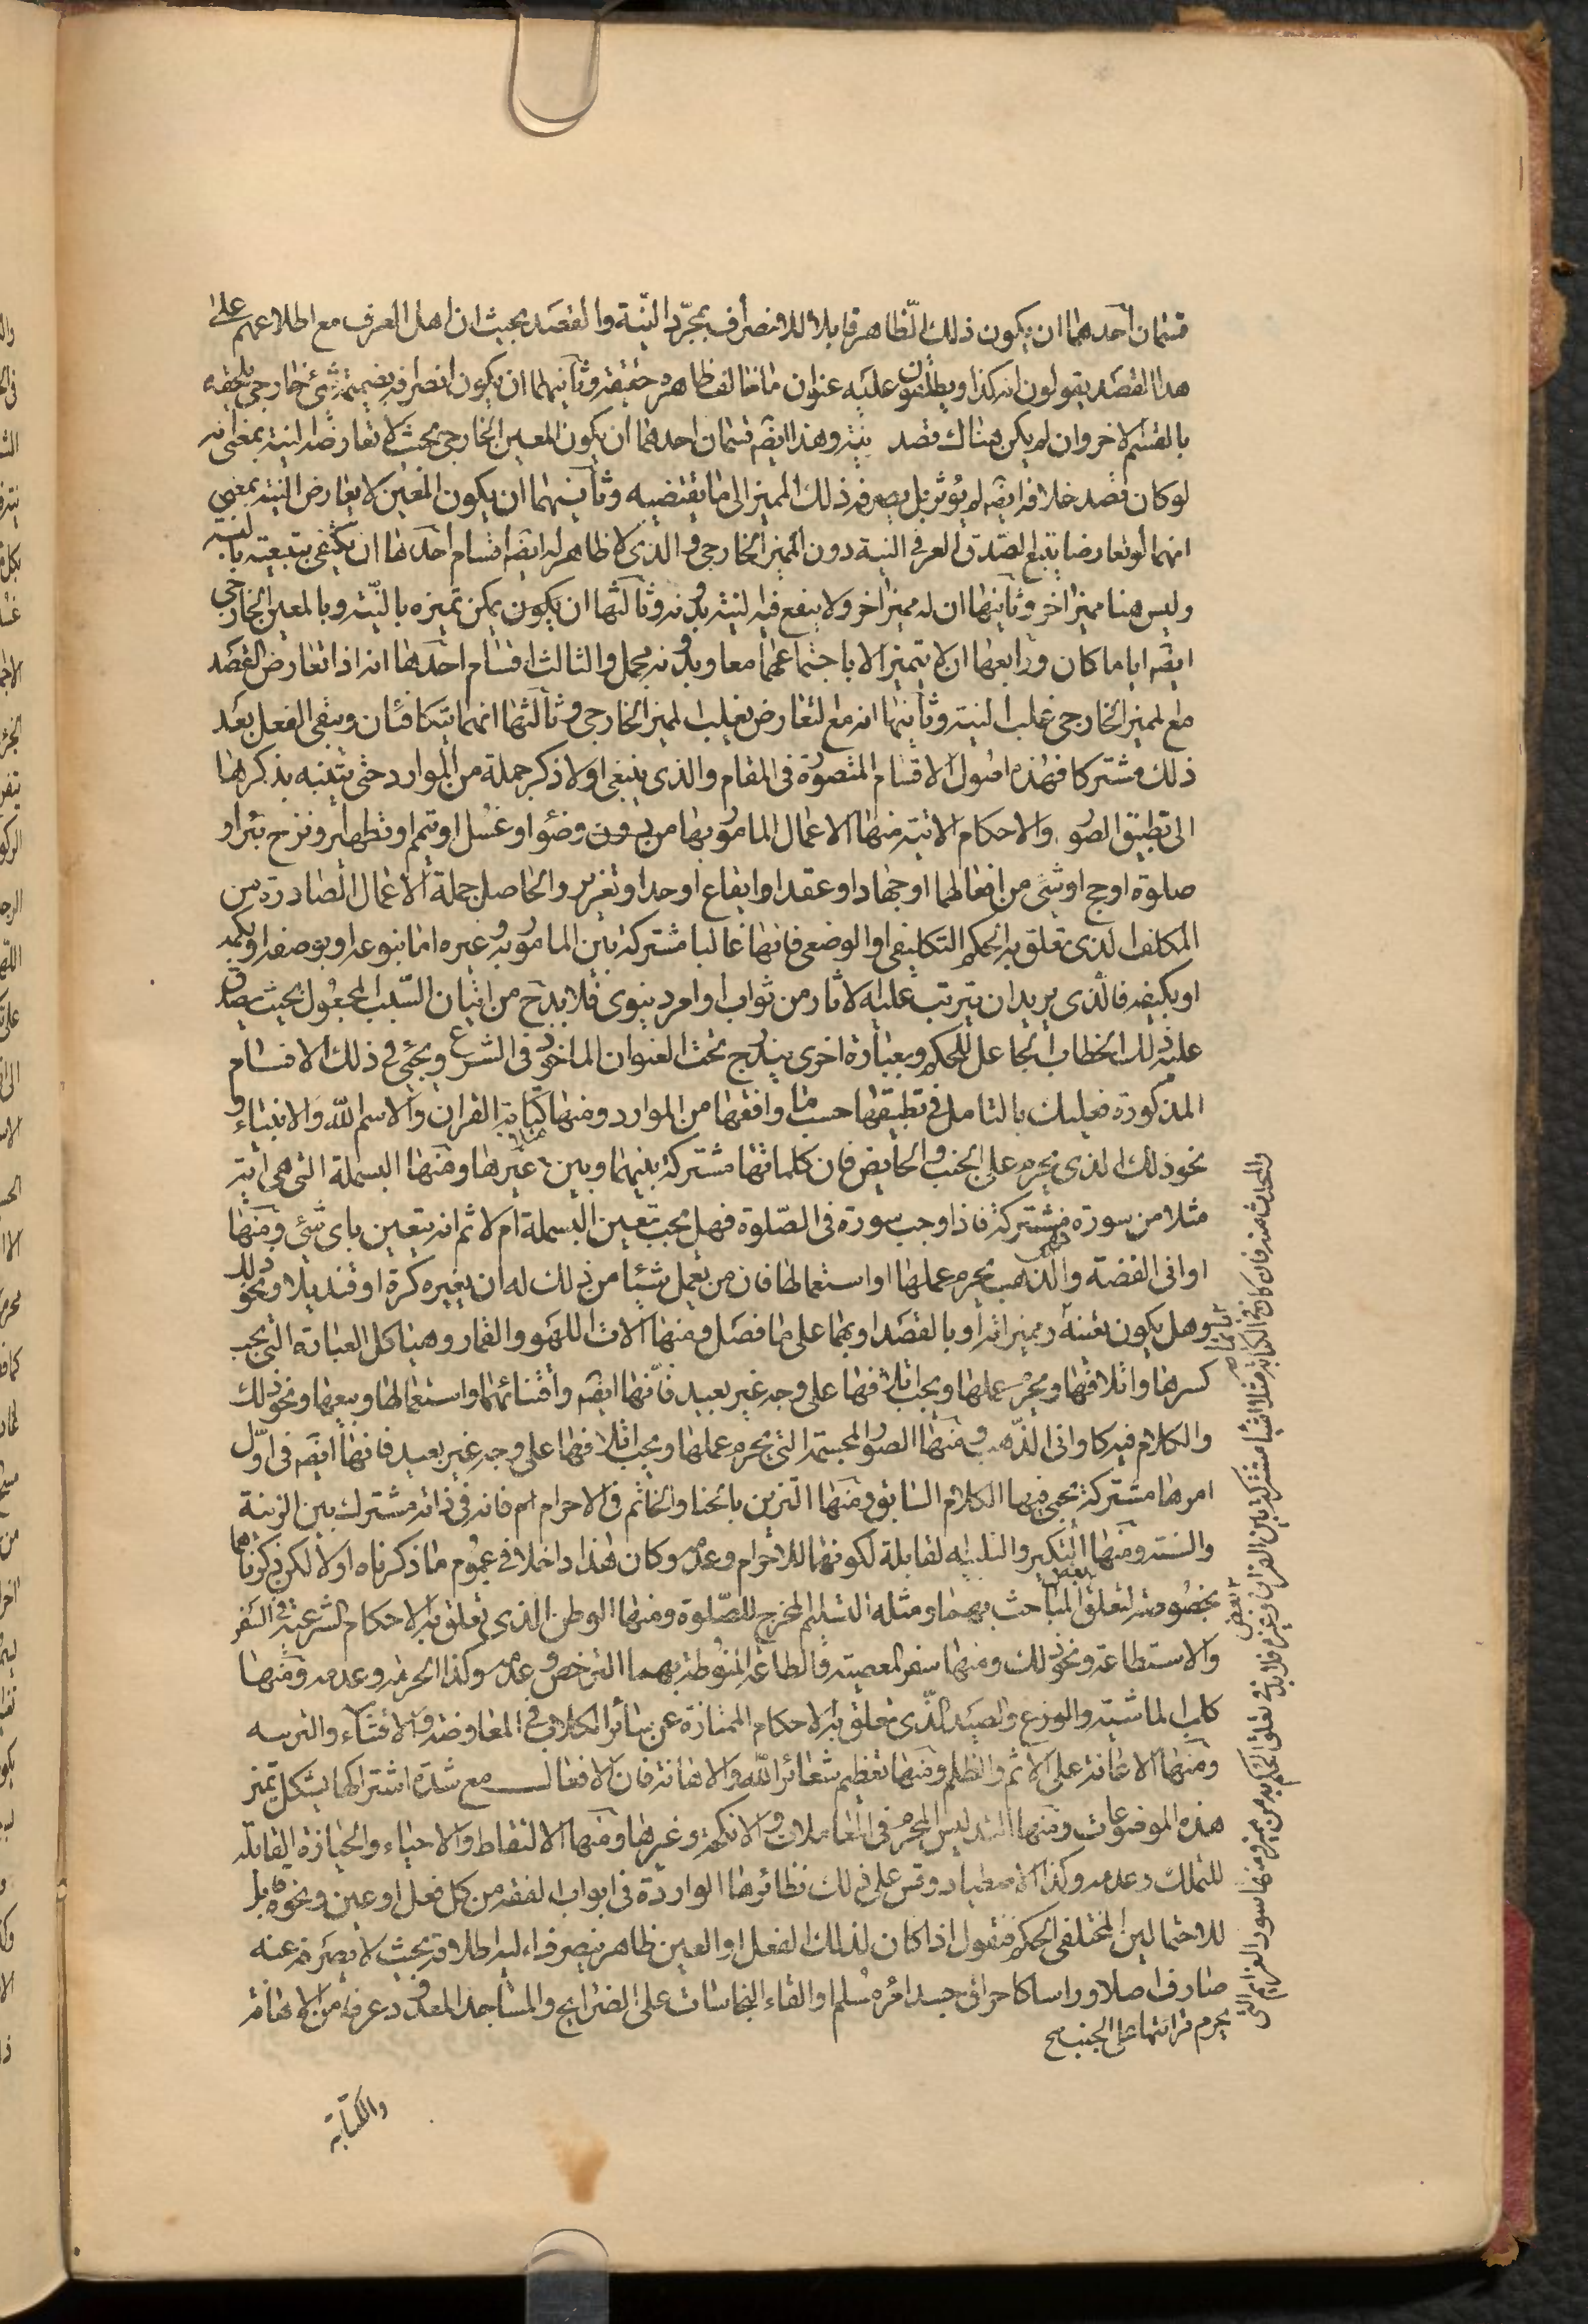 قسمان احدهما ان يكون ذلك الظاهر قابلا للانصراف بمجرّد النيّة والقصد بحيث ان اهل العرف مع اطلاعهم على
هذا القصد يقولون انه كذا ويطلقون عليه عنوان ما خالف ظاهره حقيقة وثانيهما ان يكون انصرافه بضميمة شئ خارجى يلحقه
بالقسم الاخر وان لم يكن هناك قصد نيته وهذا ايضا قسمان احدهما ان يكون المعين الخارجى بحيث لا تعارضه النية بمعنى انه
لو كان قصد خلافه ايضا لم يؤثر بل يصرفه ذلك المميز الى ما يقتضيه وثانيهما ان يكون المعين لا يعارض النية بمعنى
انهما لو تعارضا يتبع الصدق العرفى النية دون المميز الخارجى والذى لا ظاهر له ايضا اقسام احدها ان يكتفى بتبعيته بالنية
وليس هنا مميز اخر وثانيها ان له مميز اخر ولا ينفع فيه النية بدونه وثالثها ان يكون يمكن تميزه بالنيّة وبالمعين الخارجى
ايضا اياما كان ورابعها ان لا يتميز الا باجتماعهما معا وبدونه مجمل والثالث اقسام احدها انه اذا تعارض القصد
مع المميز الخارجى غلب النية وثانيها انه مع التعارض يغلب المميز الخارجى وثالثها انهما يتكافئان ويبقى الفعل بعد
ذلك مشتركا فهذه اصول الاقسام المتصورة فى المقام والذى ينبغى اولا ذكر جملة من الموارد حتى يتنبه بذكرها
الى تطبيق الصور والاحكام الاتية منها الاعمال المامور بها من دون وضؤ او غسل او تيمم او تطهير و نزح بئر او
صلوة او حج او شئ من افعالهما او جهاد او عقد او ايقاع او حد او تعزير والحاصل جملة الاعمال الصادرة من
المكلف الذى تعلق به الحكم التكليفى او الوضعى فانها غالبا مشتركة بين المامور به وغيره اما بنوعه او بوصفه او بكمه
او بكيفه فالذى يريد ان يترتب عليه الاثار من ثواب او امر دنيوى فلا بد ح من اتيان السبب المجعول بحيث يصدق
عليه ذلك الخطاب الجاعل للحكم وبعبارة اخرى يندرج تحت العنوان الماخوذ فى الشرع ويجئ فى ذلك الاقسام
المذكورة فعليك بالتامل فى تطبيقها حسب ما وافقها من الموارد ومنها كتابة القران والاسم لله والانبياء و
نحو ذلك الذى يحرم على الجنب والحايض فان كلماتها مشتركة بينهما وبين غيرها ومنها البسملة التى هى اية
مثلا من سورة مشتركة فاذا وجب سورة فى الصّلوة فهل يجب تعيين البسملة ام لا ثم انه يتعين باى شئ ومنها
اوانى الفضة والذهب يحرم عملها او استعمالها فان من يعمل شيئا من ذلك له ان يغيره كرة او قنديلا ونحو ذلك
وهل يكون تعينه وبميز اثره او بالقصد او بهما على ما فصل ومنها الات اللهو والقمار وهياكل العبادة التى يجب
كسرها واتلافها ويحرم عملها ويجب اتلافها على وجه غير بعيد فانّها ايضا واقتنائها واستعمالها وبيعها ونحو ذلك
والكلام فيه كاوانى الذّهب ومنها الصور المجسمة التى يحرم عملها ويجب اتلافها على وجه غير بعيد فانها ايضا فى اوّل
امرها مشتركة يجئ فيها الكلام السابق ومنها التزين بالحنا والخاتم فى الاحرام فانه فى ذاته مشترك بين الزينة
والسنة ومنها التكبير والتلبيه لقابلة لكونها للاحرام وعدمه وكان هذا داخلا فى عموم ما ذكرناه اولا لكن ذكرناها
بخصوصه لتعلق بعض المباحث بهما ومثله التسليم المخرج للصّلوة ومنها الوطن الذى تعلق به الاحكام الشرعية فى السفر
والاستطاعة ونحو ذلك ومنها سفر المعصية والطاعة المنوطة بهما الترخص وعدمه وكذا الحرمة وعدمه ومنها
كلب الماشية والزرع والصيد الذّى تعلق به الاحكام الممتازة عن سائر الكلاب فى المعاوضة والاقتناء والتربية
ومنها الاعانة على الاثم والظلم ومنها تعظيم شعائر الله والاهانة فان الافعال مع شدة اشتراكها يشكل تميز
هذه الموضوعات ومنها التدليس المحرم فى المعاملات والانكحة وغيرها ومنها الالتقاط والاحياء والحيازة القابلة
للتملك وعدمه وكذا الاصطياد وقس على ذلك نظائرها الواردة فى ابواب الفقه من كل فعل او عين ونحوه قابل
للاحتمالين المختلفى الحكم فنقول اذا كان لذلك الفعل او العين ظاهر ينصرف اليه اطلاقه بحيث لا يصرفه عنه
صارف اصلا وراسا كاحراق جسد امرء مسلم او القاء النجاسات على الضرايح والمساجد المعدود عرفا من الاهانة
والمحدث منه فان كان فى الكتابة مثلا اشياء مشتركة بين القران وغيره فلا بد فى تعلق الحكم به من مميز ومنها سور العزايم التى
يحرم قرائتها على الجنب صح
والكتابة